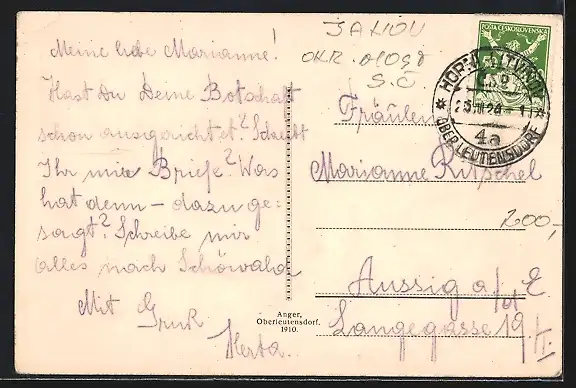 Meine liebe Marianne!
Hast Du Deine Botschaft
schon ausgerichtet? Schreibt
Ihr mir Briefe? Was
hat denn – dazu ge-
sagt? Schreibe mir
alles nach
Mit Gruß
Herta.
Anger,
Oberleutensdorf.
1910.
OKR.
S.Č
POŠTA ČESKOSLOVENSKÁ
OBERLEUTENSDORF
4a
Fräulein
Marianne Ritschel
200,-
Aussig a/d E.
Langegasse 19/I.